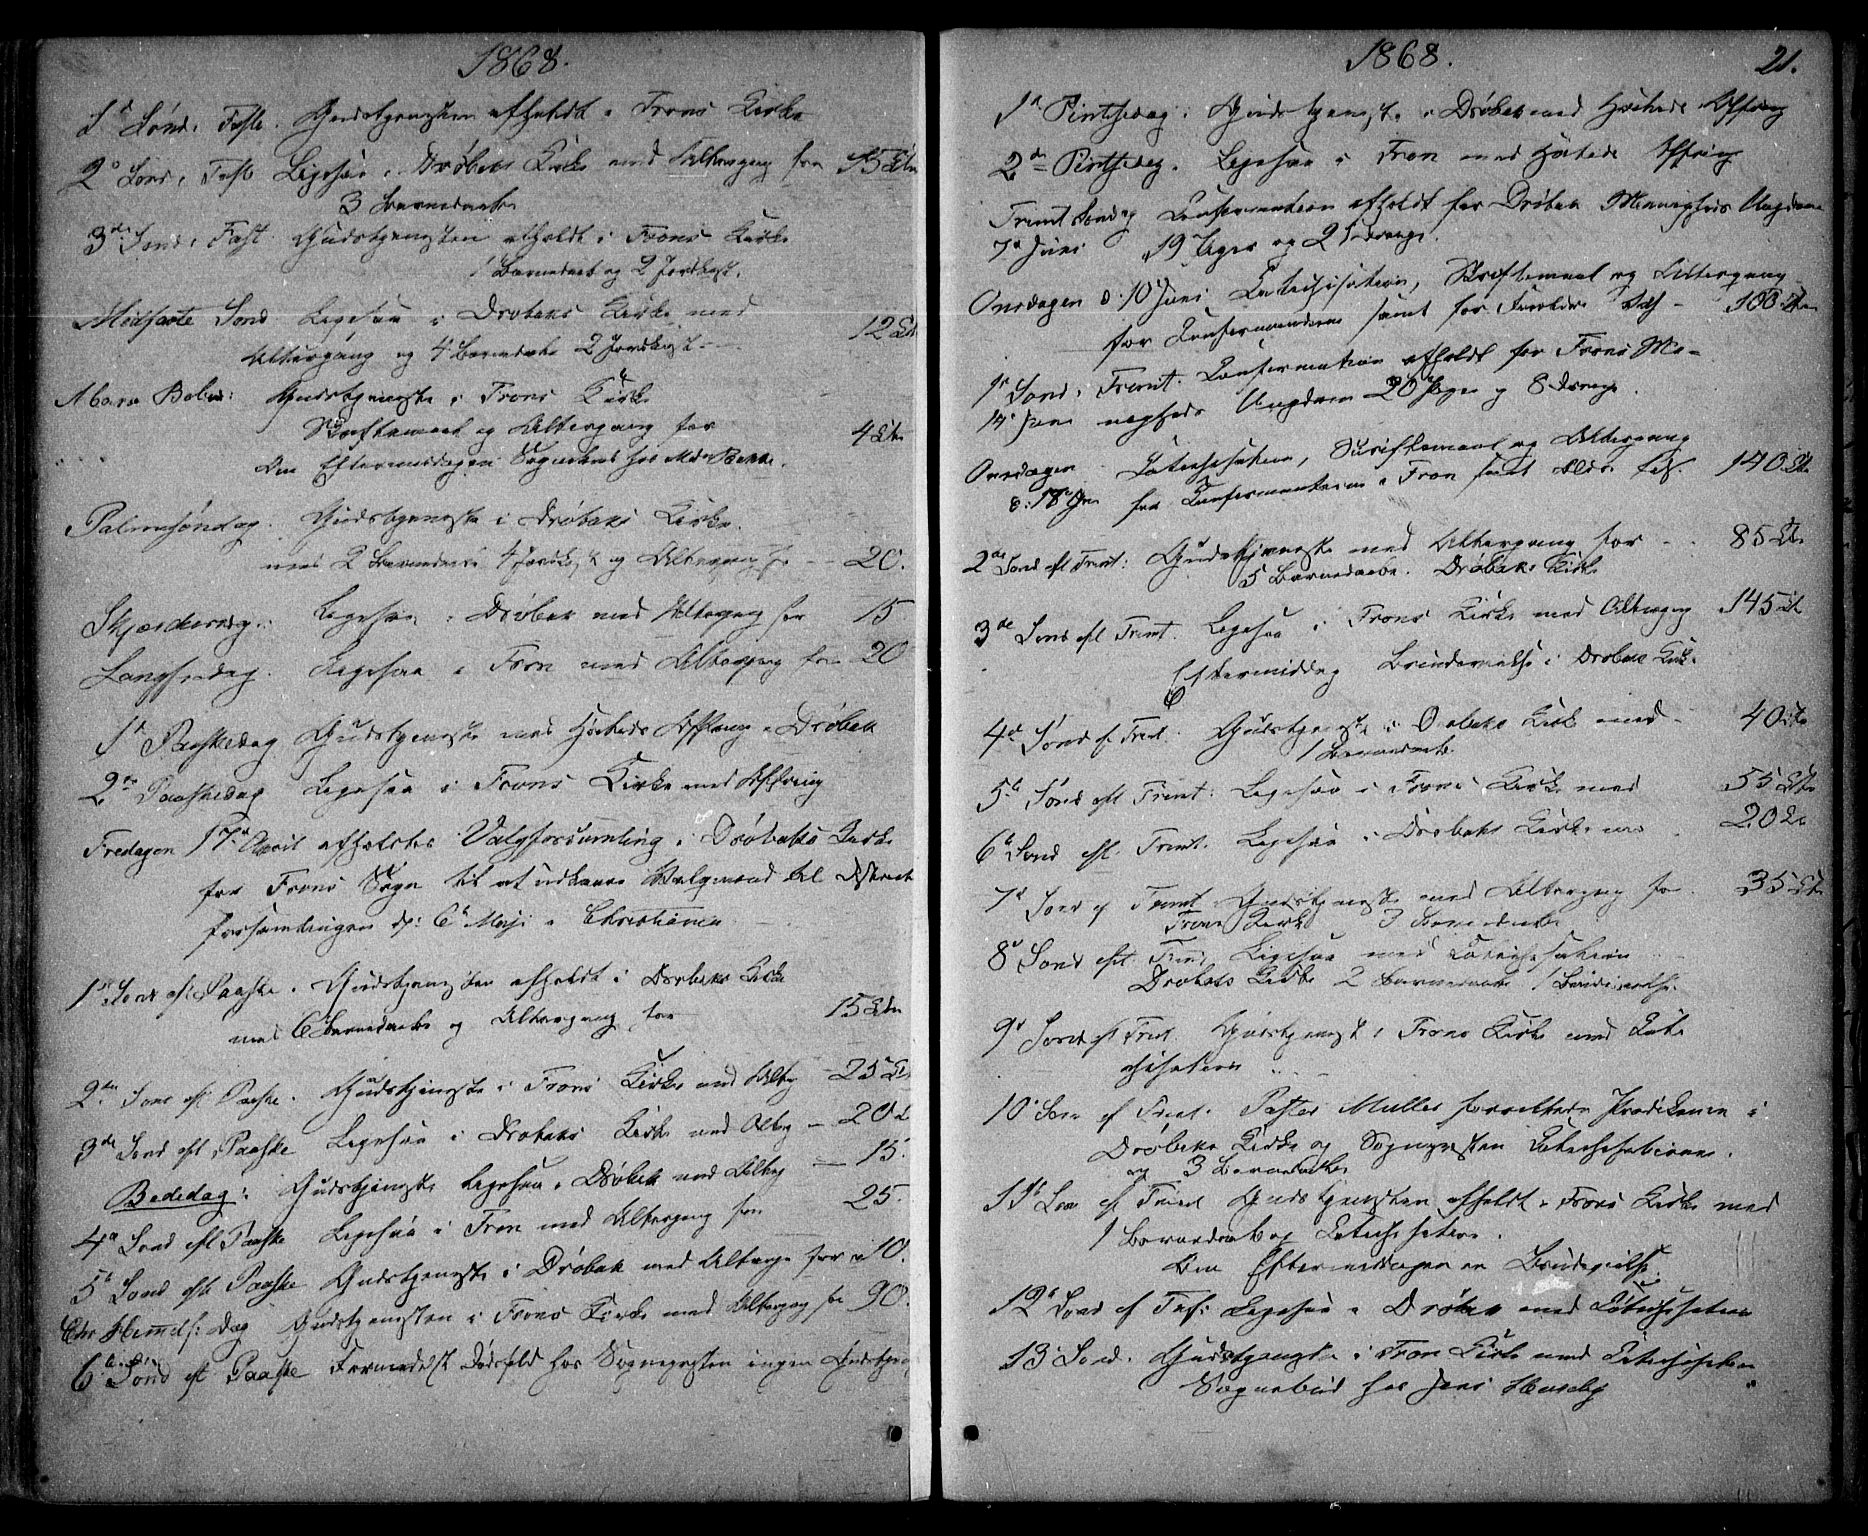 1868.
1ste Sønd. i Faste. Gudstjenesten afholdt i Frons Kirke
2den Sønd. i Faste Ligesaa i Drøbaks Kirke med Altergang for 15
3 Barnedaab
3die Sønd. i Fast. Gudstjenesten afholdt i Frons Kirke
1 Barnedaab og 2 Jordkast.
Midfaste Sønd Ligesaa i Drøbaks Kirke med
Altergang og 4 Barnedaab 2 Jordkast 12
Mariæ Gudstjeneste i Frons Kirke
Skriftemaal og Altergang for 4
Den Eftermiddagen Sognebud hos
Palmesøndag. Gudstjeneste i Drøbaks Kirke.
med 2 Barnedaab 4 Jordkast og Altergang for 20.
Skjærtorsdag. Ligesaa i Drøbak med Altergang for 15
Langfredag. Ligesaa i Fron med Altergang for 20
1ste Paaskedag Gudstjeneste med Høitids Offring i Drøbak
2den Paaskedag Ligesaa i Frons Kirke med Offring
Fredagen 17de April afholdtes Valgforsamling i Drøbaks Kirke
for Frons Sogn til at udkaare Valgmænd til Distrikts
forsamlingen d: 6te Maji i Christiania
1ste Sønd eft. Paaske. Gudstjenesten afholdt i Drøbaks Kirke
med 6 Barnedaab og Altergang for 15
2den Sønd eft Paaske. Gudstjeneste i Frons Kirke med Altrg 25
3die Sønd eft Paaske Ligesaa i Drøbaks Kirke med Altrg 20
Bededag: Gudstjeneste Ligesaa i Drøbak med Altrg 15.
4de Sønd eft Paaske Ligesaa i Fron med Altergang for 25.
5te Sønd eft Paaske Gudstjeneste i Drøbak med Altergang for 10.
Chr Himmelf: Dag Gudstjenesten i Frons Kirke med Altergang for 90.
6te Sønd eft Paaske Formedelst Dødsfald hos Sognepresten ingen Gudstjen
1868. 21.
1ste Pintsedag. Gudstjeneste i Drøbak med Høitids Offring
2den Pintsedag. Ligesaa i Fron med Høitids Offring
Trinit Søndag Confirmation afholdt for Drøbak Menigheds Ungdom
7de Juni 19 Piger og 2 Drenge.
Onsdagen d: 10 Juni Catechisation, Skriftemaal og Altergang
for Confirmanderne samt for 100
1ste Sønd. e. Trinit. Confirmation afholdt for Frons Me-
14de Juni nigheds Ungdom 20 Piger og 8 Drenge.
Onsdagen Catechisation, Skriftemaal og Altergang
d: for Confirmanterne i Fron samt 140
2den Sønd eft Trinit: Gudstjeneste med Altergang for 85
5 Barnedaab. Drøbaks Kirke
3die Sønd eft Trinit. Ligesaa i Frons Kirke med Altergang 145
Eftermiddag Brudevielse i Drøbak Kirke
4de Sønd ef. Trinit. Gudstjeneste i Drøbaks Kirke med 40
1 Barnedaab.
5te Sønd eft Trinit: Ligesaa i Frons Kirke med 55
6te Sønd eft. Trinit. Ligesaa i Drøbaks Kirke med 20
7de Sønd ef Trinit Gudstjeneste med Altergang for 35
Frons Kirke 3 Barnedaab
8de Sønd eft. Trinit Ligesaa med Catechisation
Drøbaks Kirke 2 Barnedaab 1 Brudevielse.
9de Sønd eft Trinit. Gudstjeneste i Frons Kirke med Cate
chisation
10de Sønd ef Trinit. Pastor Müller forrettede Prædikenen i
Drøbaks Kirke og Sognepresten Catechisationen.
og 3 Barnedaab
11te Sønd ef Trinit Gudstjenesten afholdt i Frons Kirke med
1 Barnedaab og Catechisation.
Den Eftermiddagen en Brudevielse.
12te Sønd ef Trinit: Ligesaa i Drøbak med Catechisation
13 Sønd. Gudstjeneste i Fron Kirke med Catechisation
Sognebud hos Jens Huseby